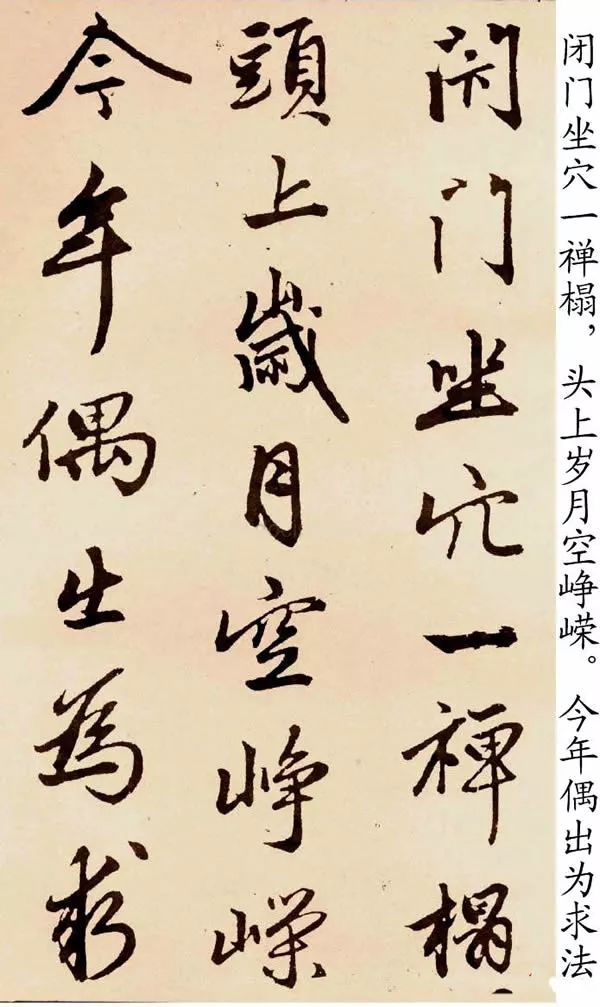 閇门坐穴一禅榻
頭上歲月空峥嵘
今年偶出為求
闭门坐穴一禅榻，头上岁月空峥嵘。今年偶出为求法